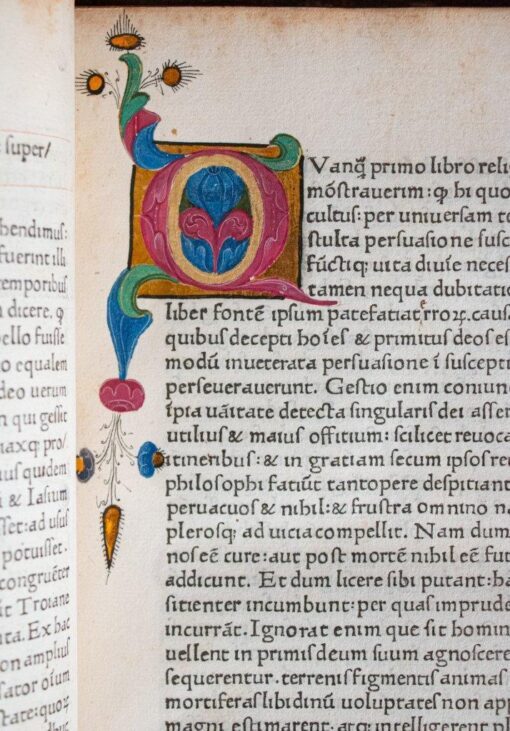 super/
hendimus:
fuerint illi
temporibus
n dicere. q
ello fuisse
o equalem
deo uerum
n qui gessit
maxq; pro/
ius quidem
i & Iasium
sset: ad usus
potuisset.
congruēter
it Troiane
ita. Ex hac
on amplius
sator oīum
state: quoꝝ
Q Vanq̃ primo libro reli
mōstrauerim: ꝙ hi quo
cultus: per uniuersam te
stulta persuasione susc
fūctiq; uita diuīe neces
tamen nequa dubitatio
liber fontē ipsum patefatiat erroꝝ. causa
quibus decepti hoīes & primitus deos es
modū inueterata persuasione ī suscepti
perseuerauerunt. Gestio enim coniunc
īpia uāitate detecta singularis dei asser
utilius & maius offitium: scilicet reuoca
itineribus: & in gratiam secum ipsos re
philosophi fatiūt tantopere despitiant
peruacuos & nihil: & frustra omnino na
plerosq; ad uicia compellit. Nam dum
nos eē cure: aut post mortē nihil eē fut
addicunt. Et dum licere sibi putant: ha
sitienter incumbunt: per quas imprude
incurrāt. Ignorat enim que sit homin
uellent in primis deum suum agnoscere
sequerentur. terrenis figmentis animas
mortiferas libidinū uoluptates non app
magni estimarent. atq; intelligerent pl